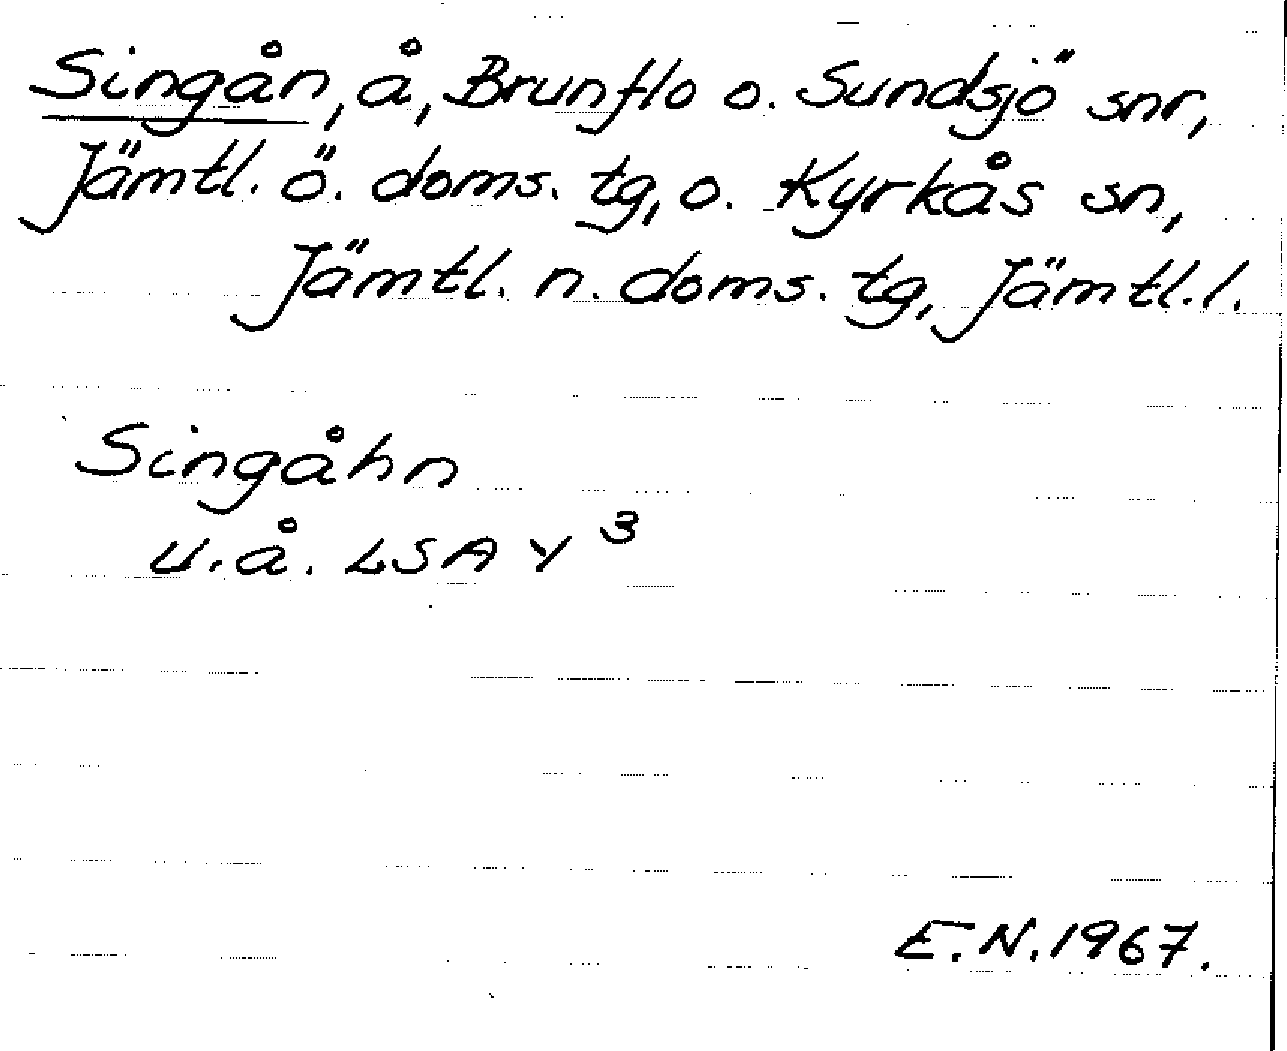 Singån, å, Brunflo o. Sundsjö snr,
Jämtl. ö. doms. tg, o. Kyrkås sn,
Jämtl. n. doms. tg, Jämtl. l.
Singåhn
u.å. LSA Y 3
E.N. 1967.